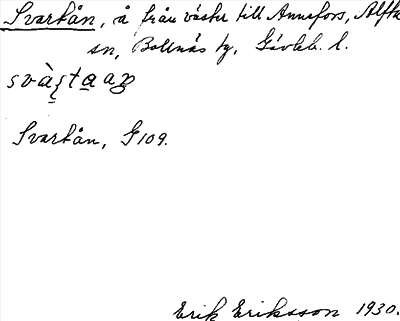 Svartån, å från väster till Annefors, Alfta
sn, Bollnäs tg, Gävleb. l.
Svartån, G109.
Erik Eriksson 1930.